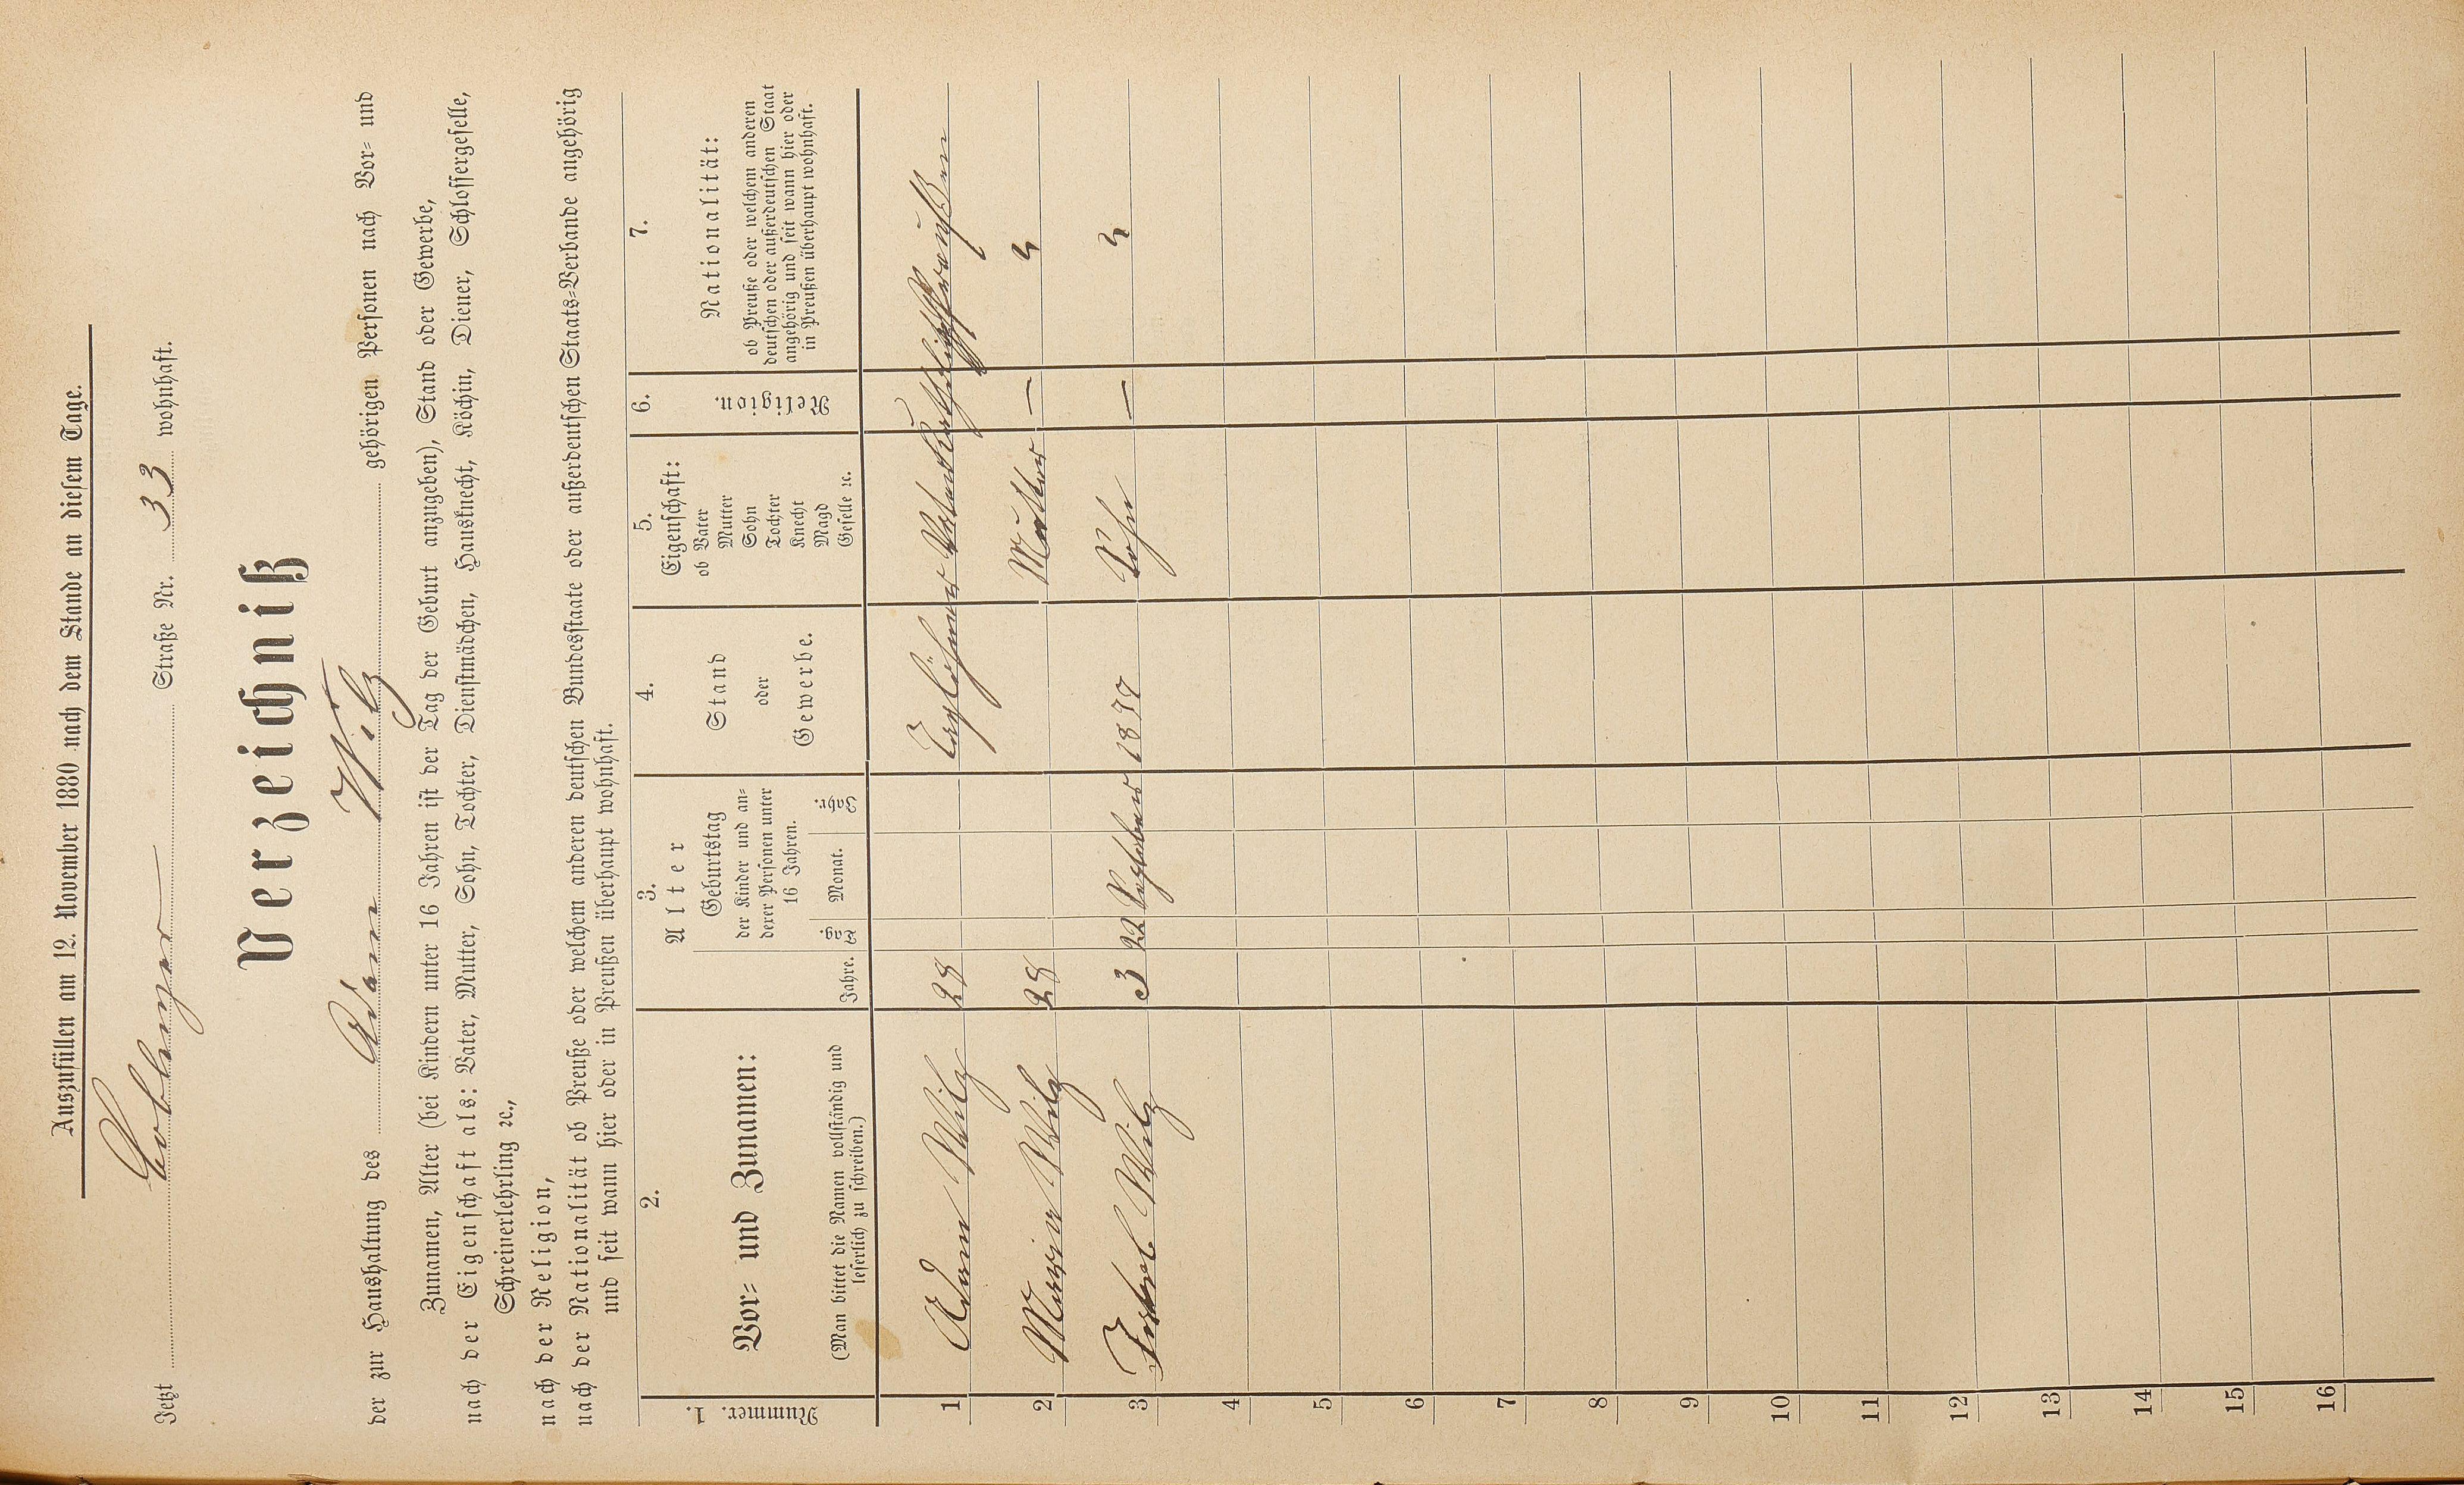 Auszufüllen am 12. November 1880 nach dem Stande an diesem Tage.
Jetzt Coblenzer Straße Nr. 33 wohnhaft.
Verzeichniß
der zur Haushaltung des Adam Wilz gehörigen Personen nach Vor- und
Zunamen, Alter (bei Kindern unter 16 Jahren ist der Tag der Geburt anzugeben), Stand oder Gewerbe,
nach der Eigenschaft als: Vater, Mutter, Sohn, Tochter, Dienstmädchen, Hausknecht, Köchin, Diener, Schlossergeselle,
Schreinerlehrling ꝛc.,
nach der Religion,
nach der Nationalität ob Preuße oder welchem anderen deutschen Bundesstaate oder außerdeutschen Staats-Verbande angehörig
und seit wann hier oder in Preußen überhaupt wohnhaft.
1. Nummer.
2. Vor- und Zunamen:
(Man bittet die Namen vollständig und
leserlich zu schreiben.)
3. Alter
Jahre.
Geburtstag
der Kinder und an-
derer Personen unter
16 Jahren.
Tag. Monat. Jahr.
4. Stand
oder
Gewerbe.
5. Eigenschaft:
ob Vater
Mutter
Sohn
Tochter
Knecht
Magd
Geselle ꝛc.
6. Religion.
7. Nationalität:
ob Preuße oder welchem anderen
deutschen oder außerdeutschen Staat
angehörig und seit wann hier oder
in Preußen überhaupt wohnhaft.
1 Adam Wilz 28 Taglöhner Vater Katholisch Preußen
2 Maria Wilz 28 Mutter — "
3 Jakob Wilz 3 22 September 1877 Sohn — "
4
5
6
7
8
9
10
11
12
13
14
15
16